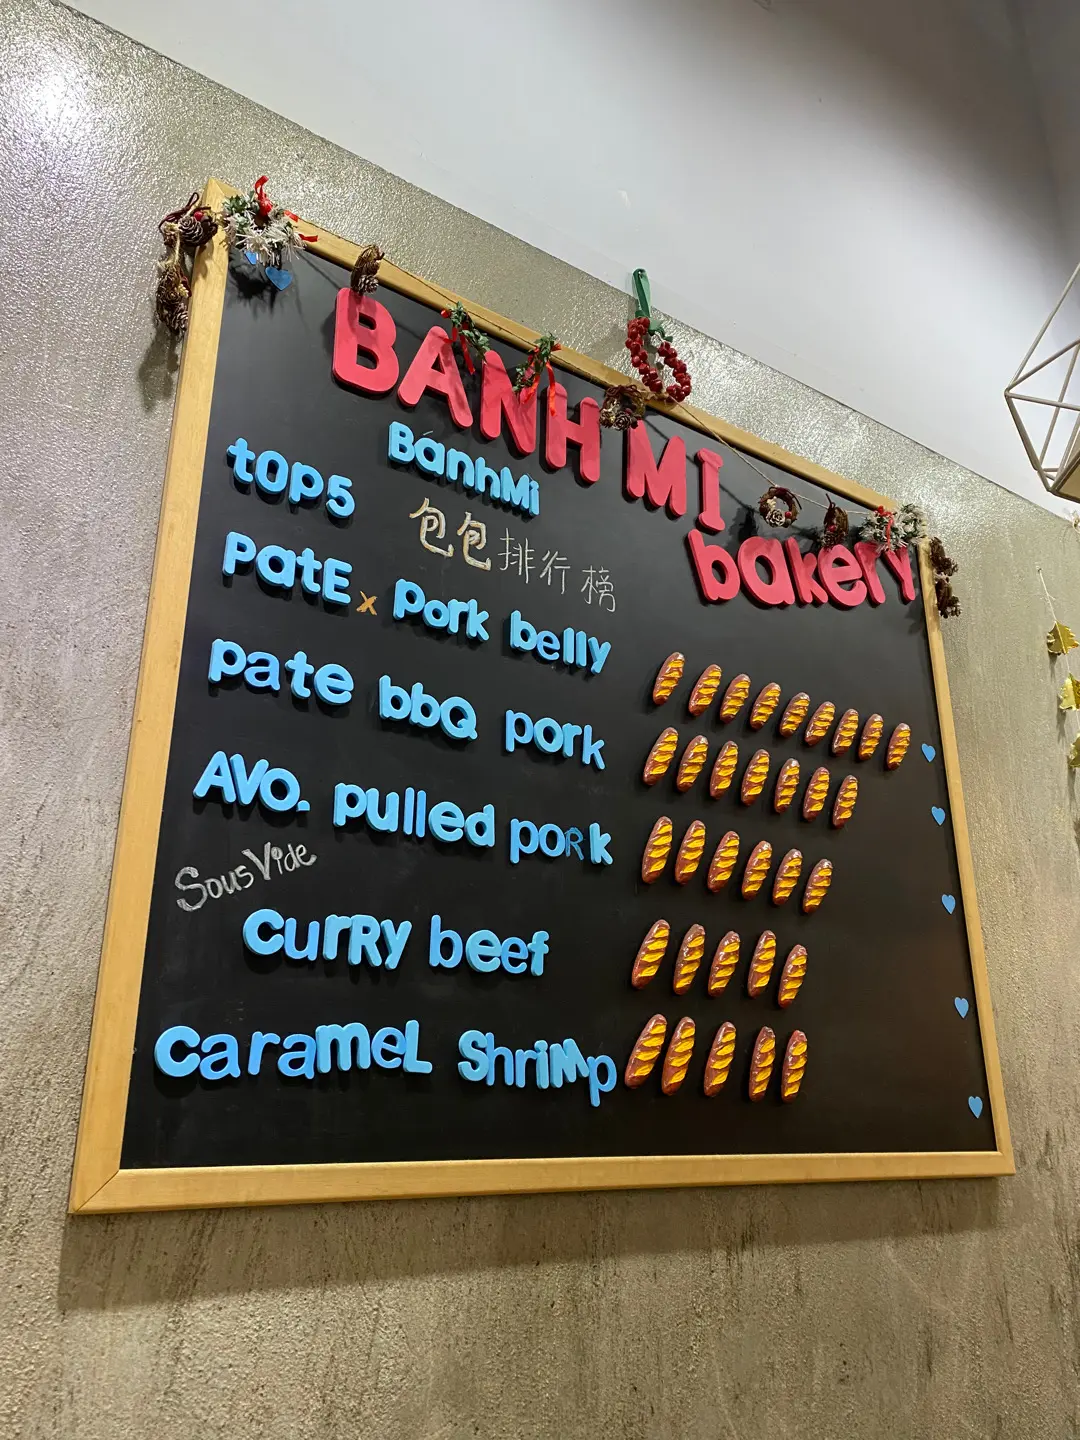 BANH MI
bakery
top5 BanhMi
包包排行榜
patE x pork belly
pate bbQ pork
AVO. pulled poRk
Sous Vide
CurRy beef
CarameL ShriMp